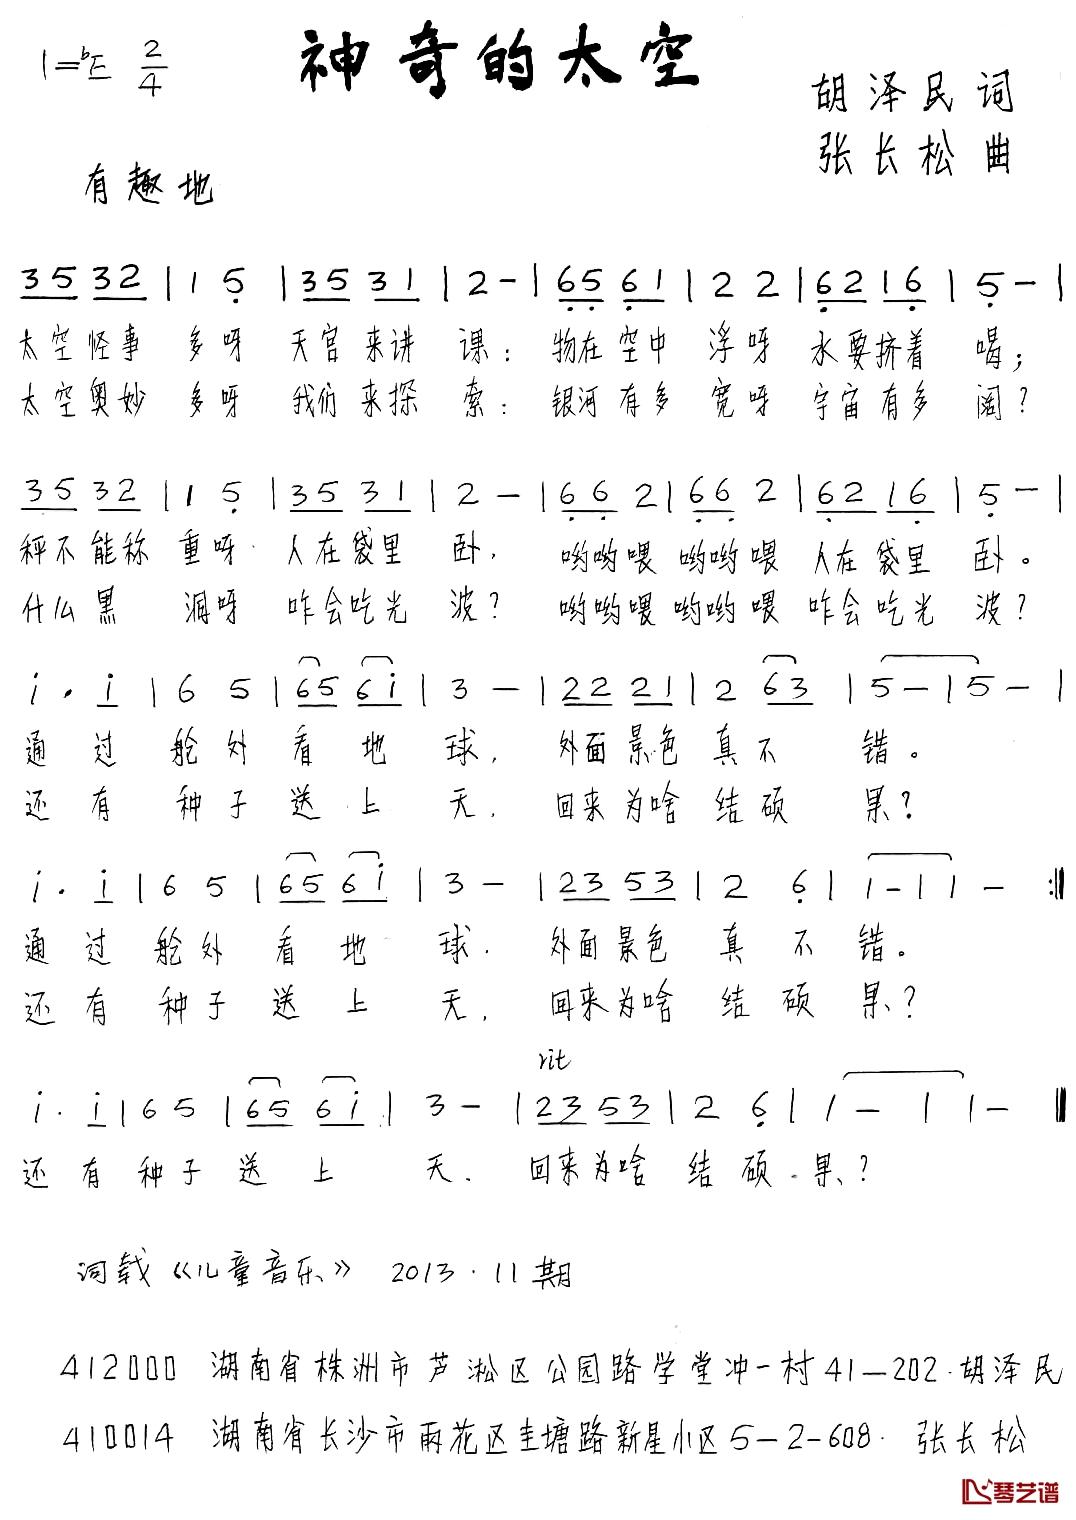 神奇的太空
1=♭E 2/4
胡泽民词
张长松曲
有趣地
3532 | 1 5 | 3531 | 2 - | 6561 | 2 2 | 6216 | 5 - |
太空怪事 多呀 天宫来讲 课: 物在空中 浮呀 水要挤着 喝;
太空奥妙 多呀 我们来探 索: 银河有多 宽呀 宇宙有多 阔?
3532 | 1 5 | 3531 | 2 - | 66 2 | 66 2 | 6216 | 5 - |
秤不能称 重呀. 人在袋里 卧, 哟哟喂 哟哟喂 人在袋里 卧。
什么黑 洞呀 咋会吃光 波? 哟哟喂 哟哟喂 咋会吃光 波?
i · i | 6 5 | 65 6i | 3 - | 22 21 | 2 63 | 5 - | 5 - |
通 过 舱 外 看 地 球, 外面景色 真不 错。
还 有 种 子 送 上 天, 回来为啥 结硕 果?
i · i | 6 5 | 65 6i | 3 - | 23 53 | 2 6 | 1 - | 1 - :||
通 过 舱 外 看 地 球. 外面景色 真 不 错。
还 有 种 子 送 上 天, 回来为啥 结 硕 果?
rit
i · i | 6 5 | 65 6i | 3 - | 23 53 | 2 6 | 1 - | 1 | 1 - ||
还 有 种 子 送 上 天. 回来为啥 结 硕 果?
词载《儿童音乐》 2013·11期
412000 湖南省株洲市芦淞区公园路学堂冲一村41—202·胡泽民
410014 湖南省长沙市雨花区圭塘路新星小区5—2—608· 张长松
琴艺谱